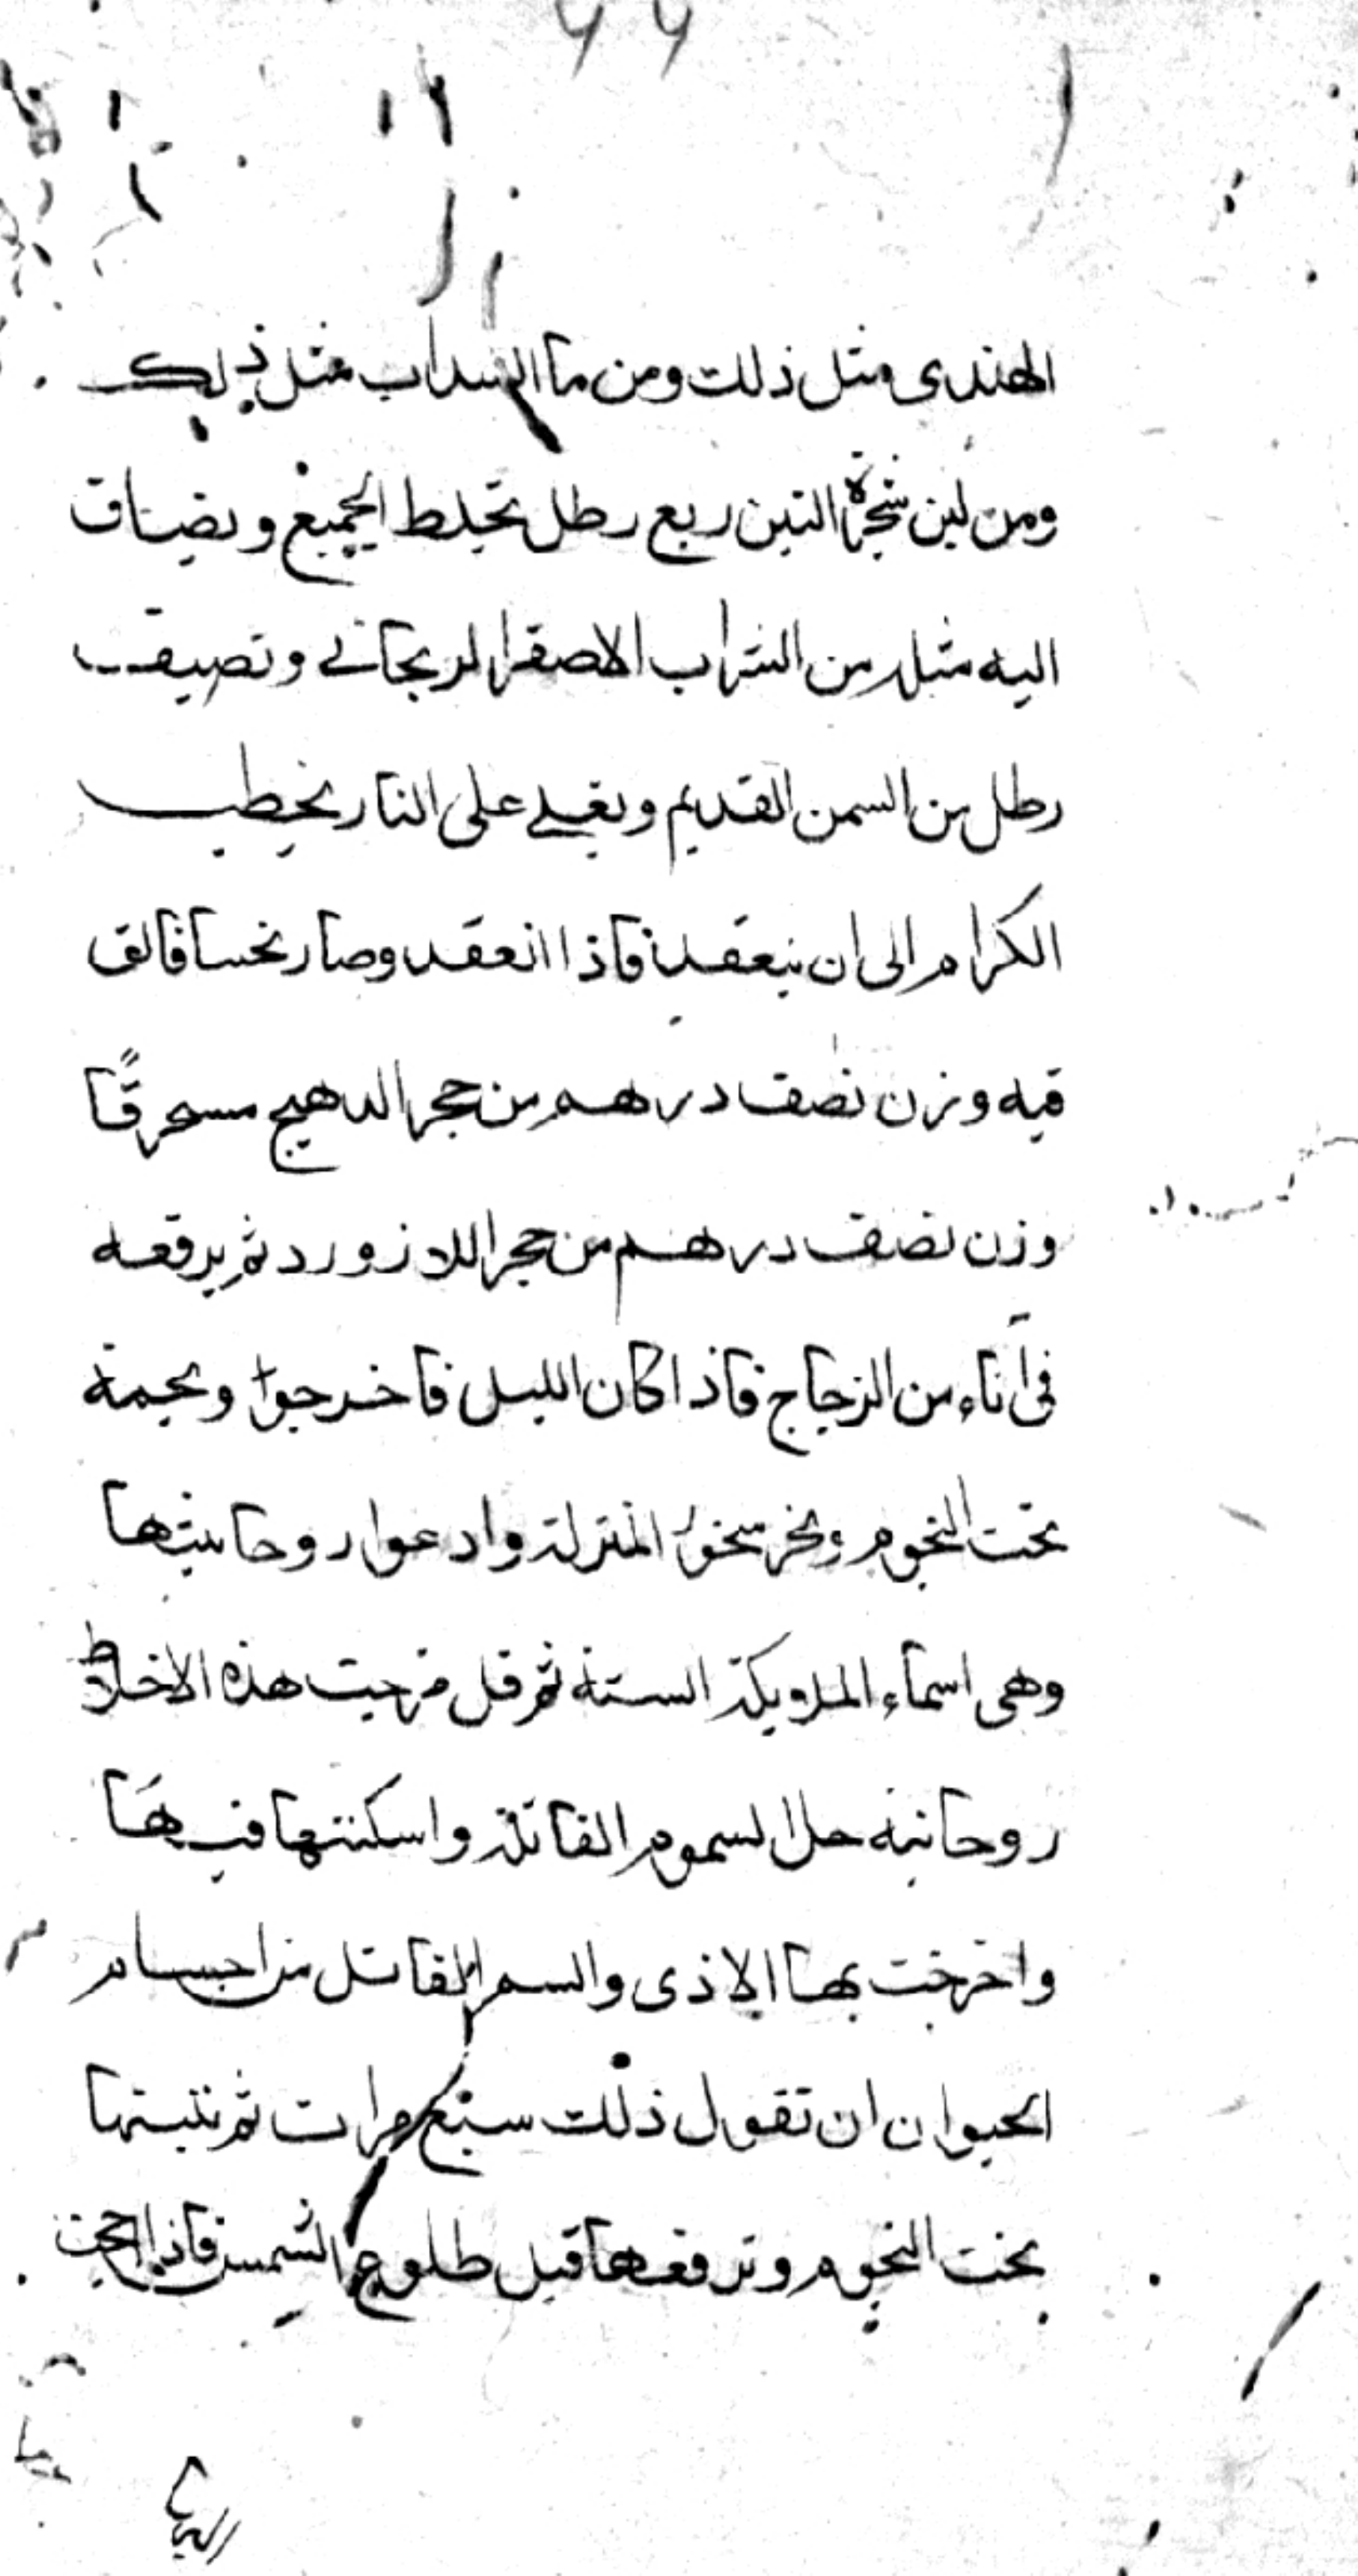 الهندى مثل ذلك ومن ما السداب مثل ذلك
ومن لبن شجرة التين ربع رطل تخلط الجميع ويضاف
اليه مثله من الشراب الاصفر الريحاني وتضيف
رطل من السمن القديم ويغلي على النار بحطب
الكرام الى ان ينعقد فاذا انعقد وصار نخسا فالق
فيه وزن نصف درهم من حجر الدهيج مسحوقًا
وزن نصف درهم من حجر اللازورد ثم يرفعه
فى آناء من الزجاج فاذا كان الليل فاخرجوا ونجمه
تحت النجوم وبخر بخور المنزلة وادعوا روحانيتها
وهى اسماء الملايكة الستة ثم قل مزجت هذه الاخلاط
روحانية حل السموم القاتلة واسكنتها فيها
واخرجت بها الاذى والسم القاتل من اجسام
الحيوان ان تقول ذلك سبع مرات ثم تبيتها
تحت النجوم وترفعها قبل طلوع الشمس فاذا احجت
اليها